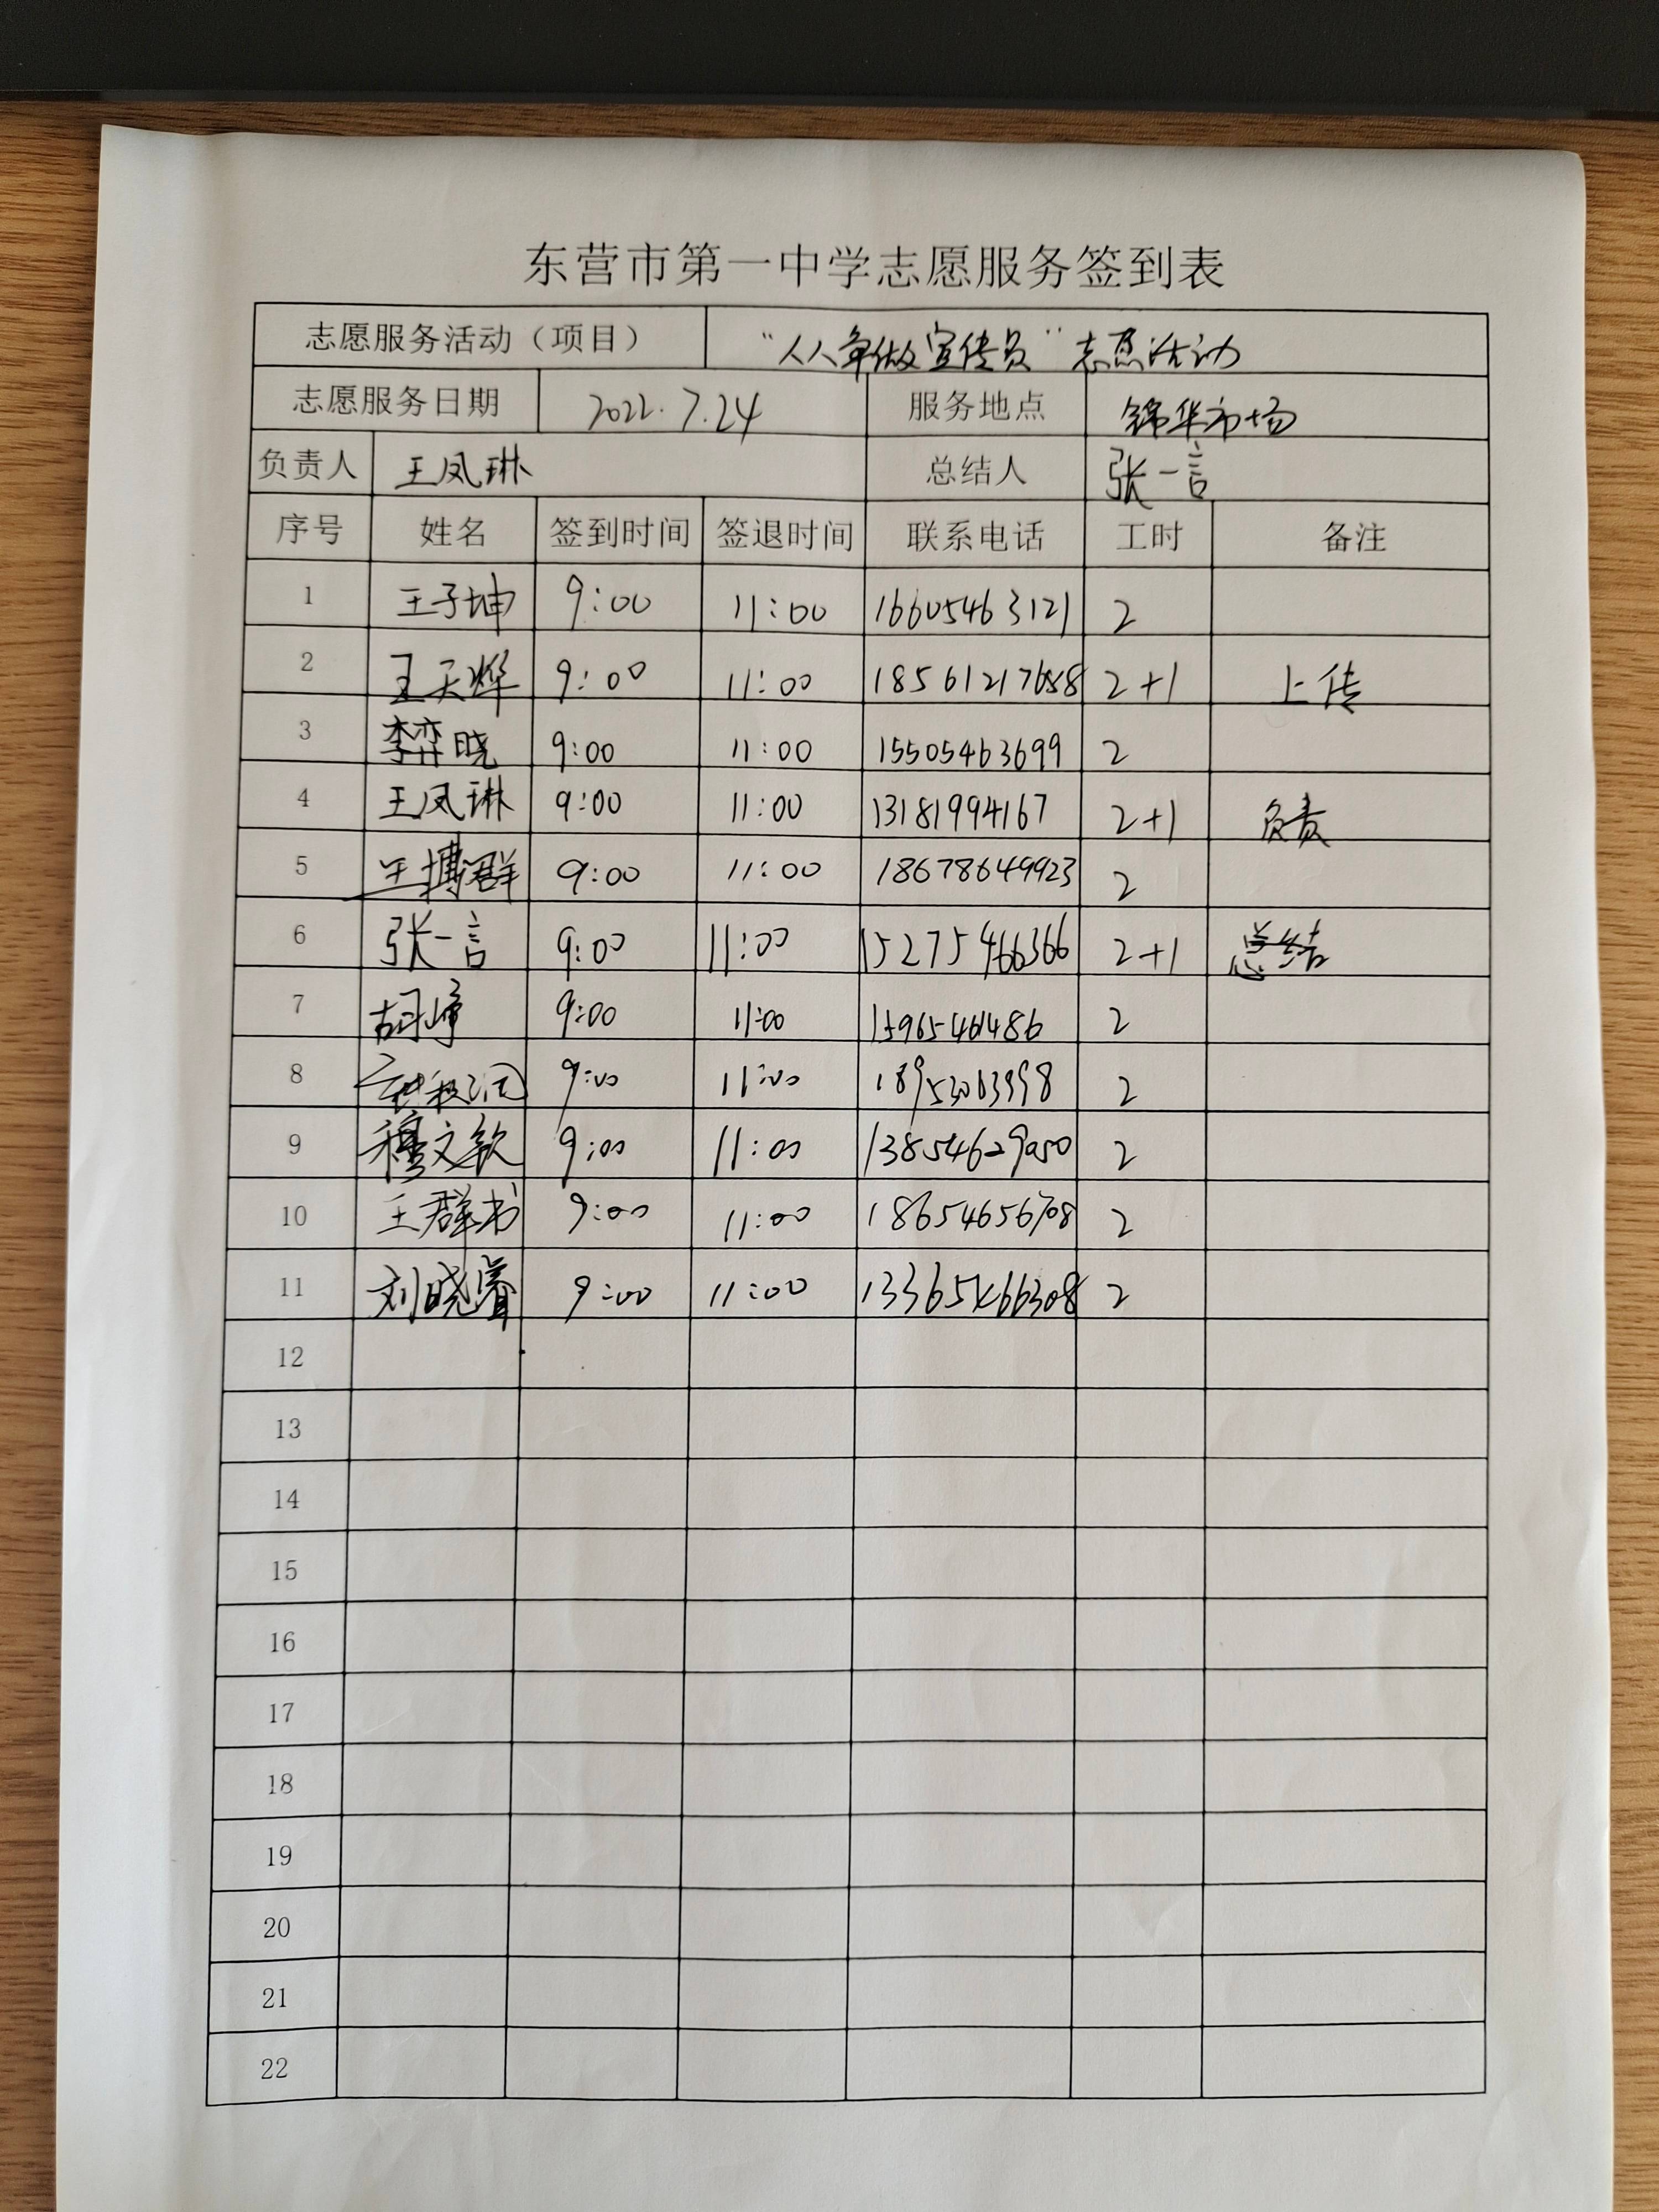 东营市第一中学志愿服务签到表
志愿服务活动（项目） “人人争做宣传员”志愿活动
志愿服务日期 2022.7.24 服务地点 锦华市场
负责人 王凤琳 总结人 张一言
序号 姓名 签到时间 签退时间 联系电话 工时 备注
1 王子坤 9:00 11:00 16605463121 2
2 王天烨 9:00 11:00 18561217658 2+1 上传
3 李弈晓 9:00 11:00 15505463699 2
4 王凤琳 9:00 11:00 13181994167 2+1 负责
5 王博群 9:00 11:00 18678649923 2
6 张一言 9:00 11:00 15275466366 2+1 总结
7 9:00 11:00 15965461486 2
8 9:00 11:00 2
9 穆文钦 9:00 11:00 13854629050 2
10 王群书 9:00 11:00 18654656708 2
11 刘晓睿 9:00 11:00 13365466308 2
12
13
14
15
16
17
18
19
20
21
22